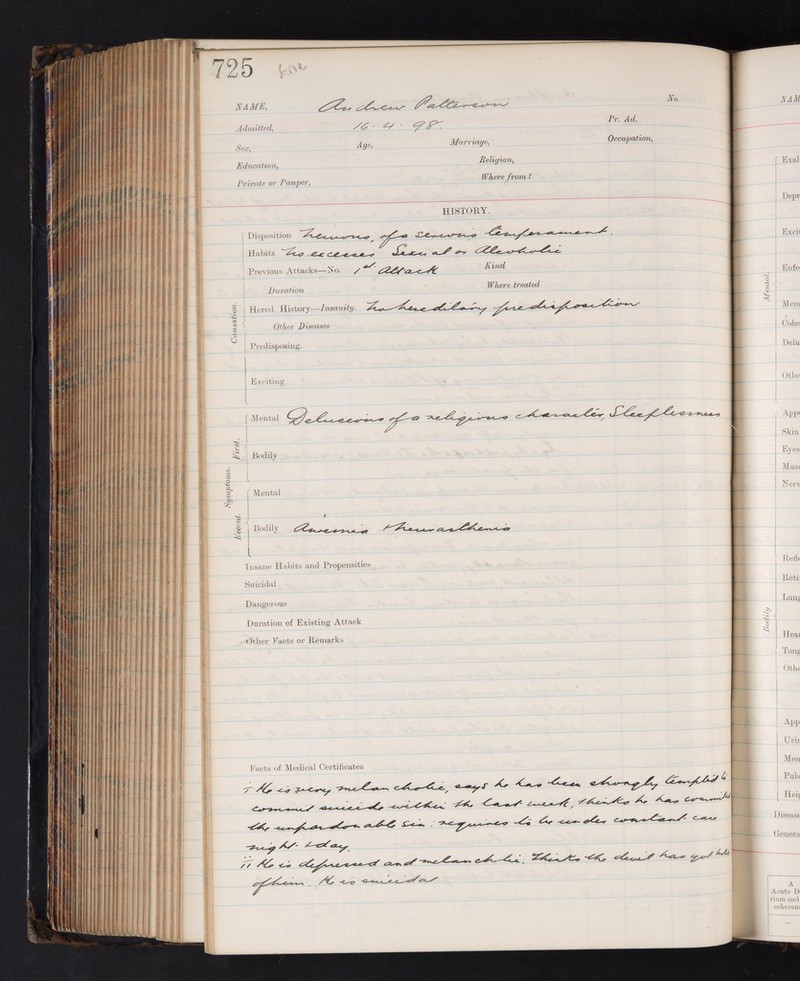 725
NAME, Andrew Patterson No.
Admitted, 16. 4. 98. Pr. Ad.
Sex, Age, Marriage, Occupation,
Education, Religion,
Private or Pauper, Where from?
HISTORY.
Causation.
Disposition nervous, of a serious temperament.
Habits no excesses Sexual or Alcoholic
Previous Attacks—No. 1st Attack Kind
Duration Where treated
Hered. History—Insanity. No hereditary predisposition
Other Diseases
Predisposing.
Exciting
Symptoms.
First.
Mental Delusions of a religious character, Sleeplessness
Bodily
Second.
Mental
Bodily Anaemia & neurasthenia
Insane Habits and Propensities
Suicidal
Dangerous
Duration of Existing Attack
Other Facts or Remarks
Facts of Medical Certificates
i He is very melancholic, says he has been strongly tempted to
commit suicide within the last week, thinks he has committed
the unpardonable sin: requires to be under constant care
night & day.
ii He is depressed and melancholic. Thinks the devil has got hold
of him. He is suicidal
NAM
Mental.
Exal
Depr
Excit
Enfe
Mem
Cohe
Delu
Othe
Bodily
Appe
Skin
Eyes
Musc
Nerv
Refle
Retin
Lung
Hear
Tong
Othe
App
Urin
Men
Puls
Heig
Disease
Genera
A
Acute De
rium and
coheren